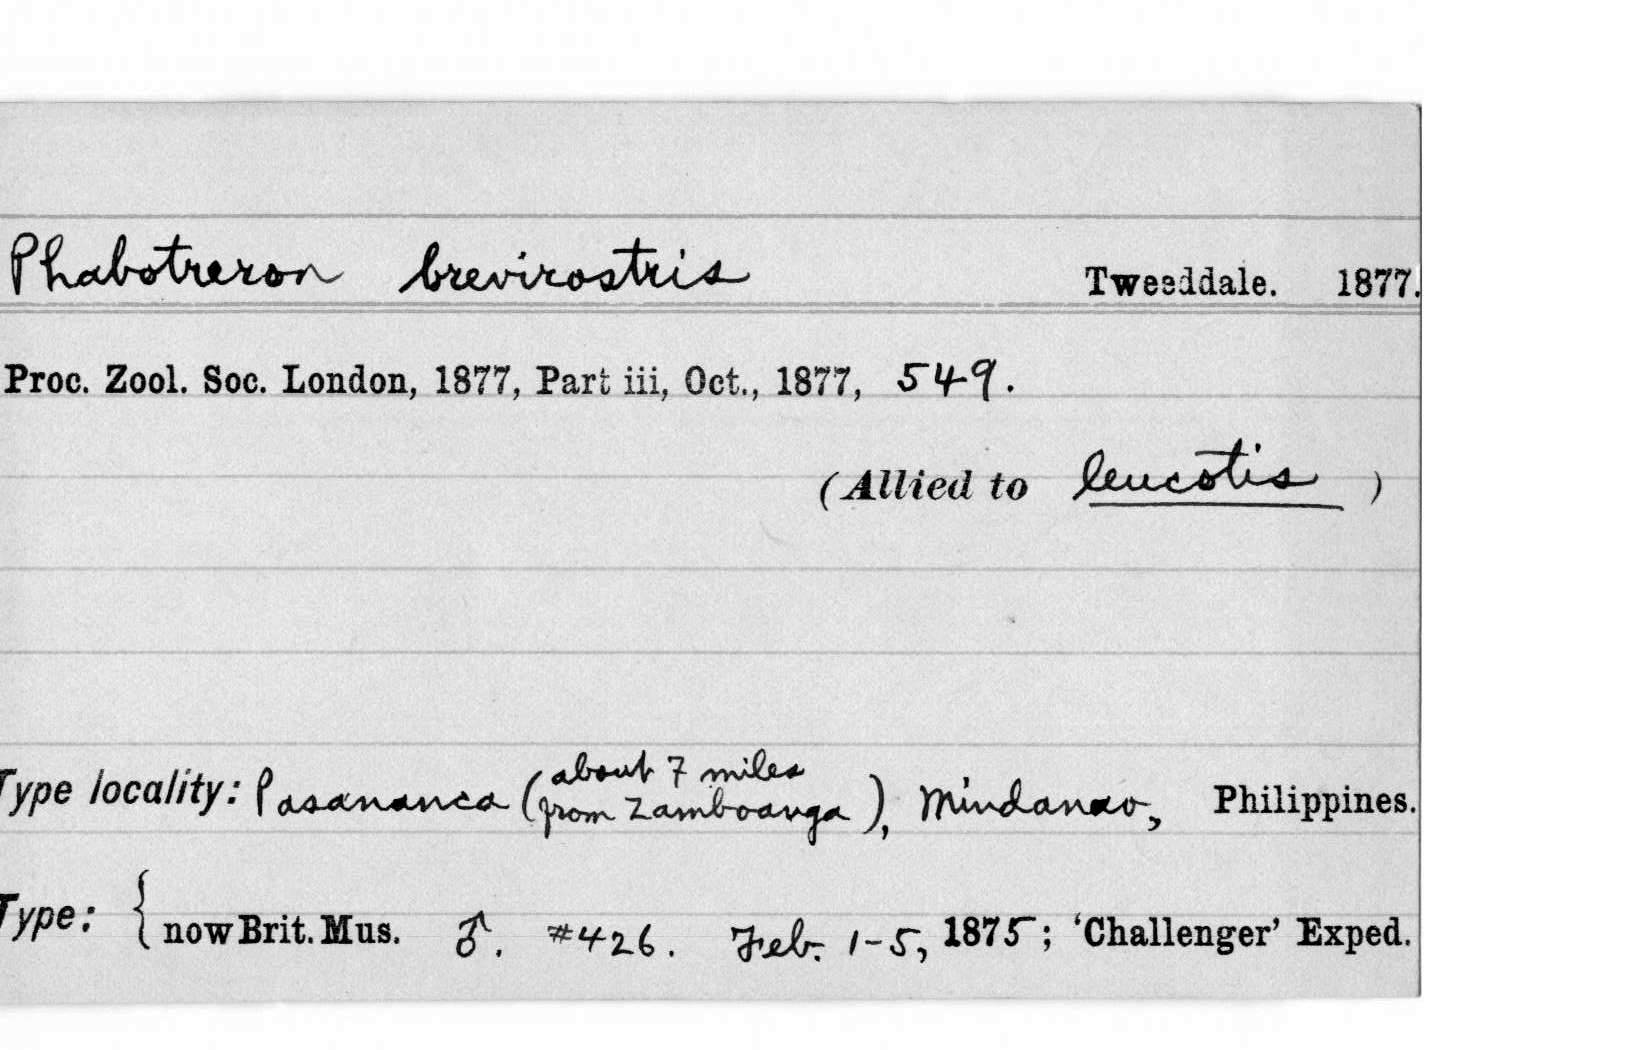 Phabotreron brevirostris Tweeddale. 1877.
Proc. Zool. Soc. London, 1877, Part iii, Oct., 1877, 549.
(Allied to leucotis )
Type locality: Pasananca (about 7 miles from Zamboanga), Mindanao, Philippines.
Type: { now Brit. Mus. ♂. #426. Feb. 1-5, 1875; 'Challenger' Exped.